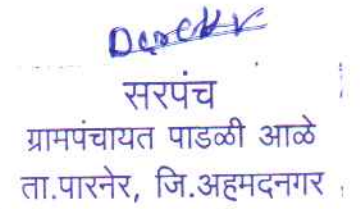 सरपंच
ग्रामपंचायत पाडळी आळे
ता.पारनेर, जि.अहमदनगर